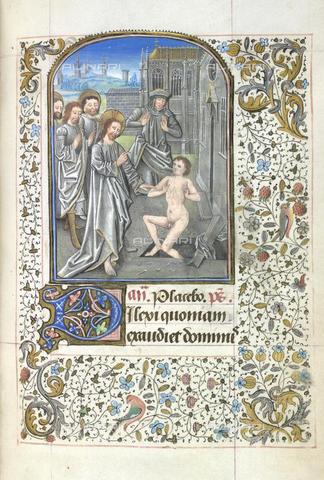 an̄. Placebo. ps̄.
Dilexi quoniam
exaudiet domin9